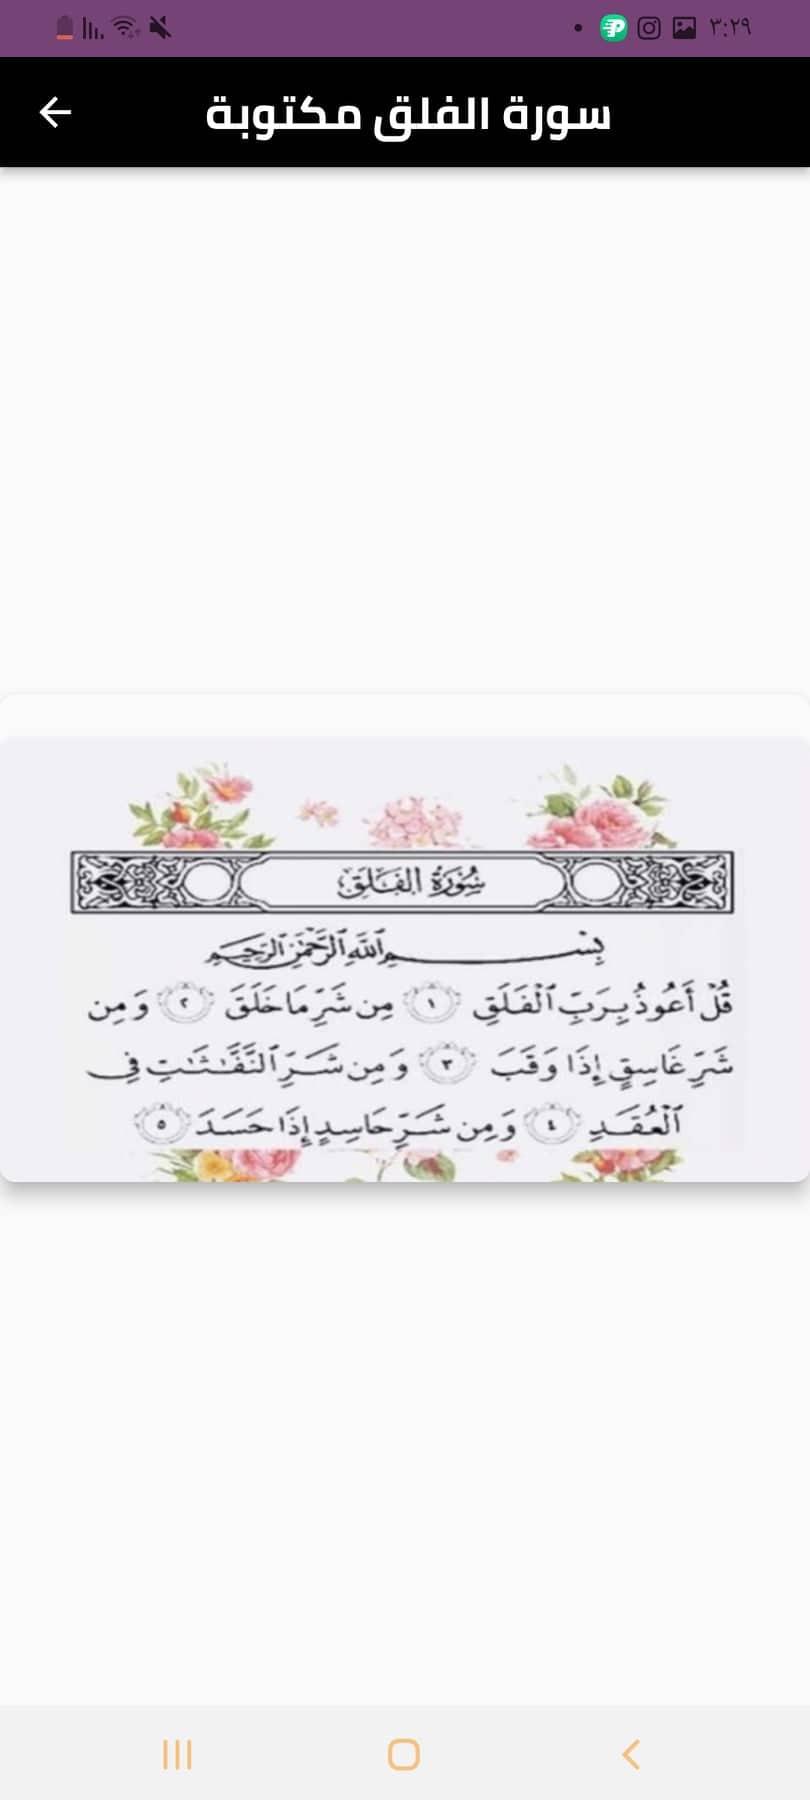 ٣:٢٩
سورة الفلق مكتوبة
سُورَةُ الفَلَقِ
بِسْمِ ٱللَّهِ ٱلرَّحْمَٰنِ ٱلرَّحِيمِ
قُلْ أَعُوذُ بِرَبِّ ٱلْفَلَقِ ١ مِن شَرِّ مَا خَلَقَ ٢ وَمِن
شَرِّ غَاسِقٍ إِذَا وَقَبَ ٣ وَمِن شَرِّ ٱلنَّفَّٰثَٰتِ فِي
ٱلْعُقَدِ ٤ وَمِن شَرِّ حَاسِدٍ إِذَا حَسَدَ ٥